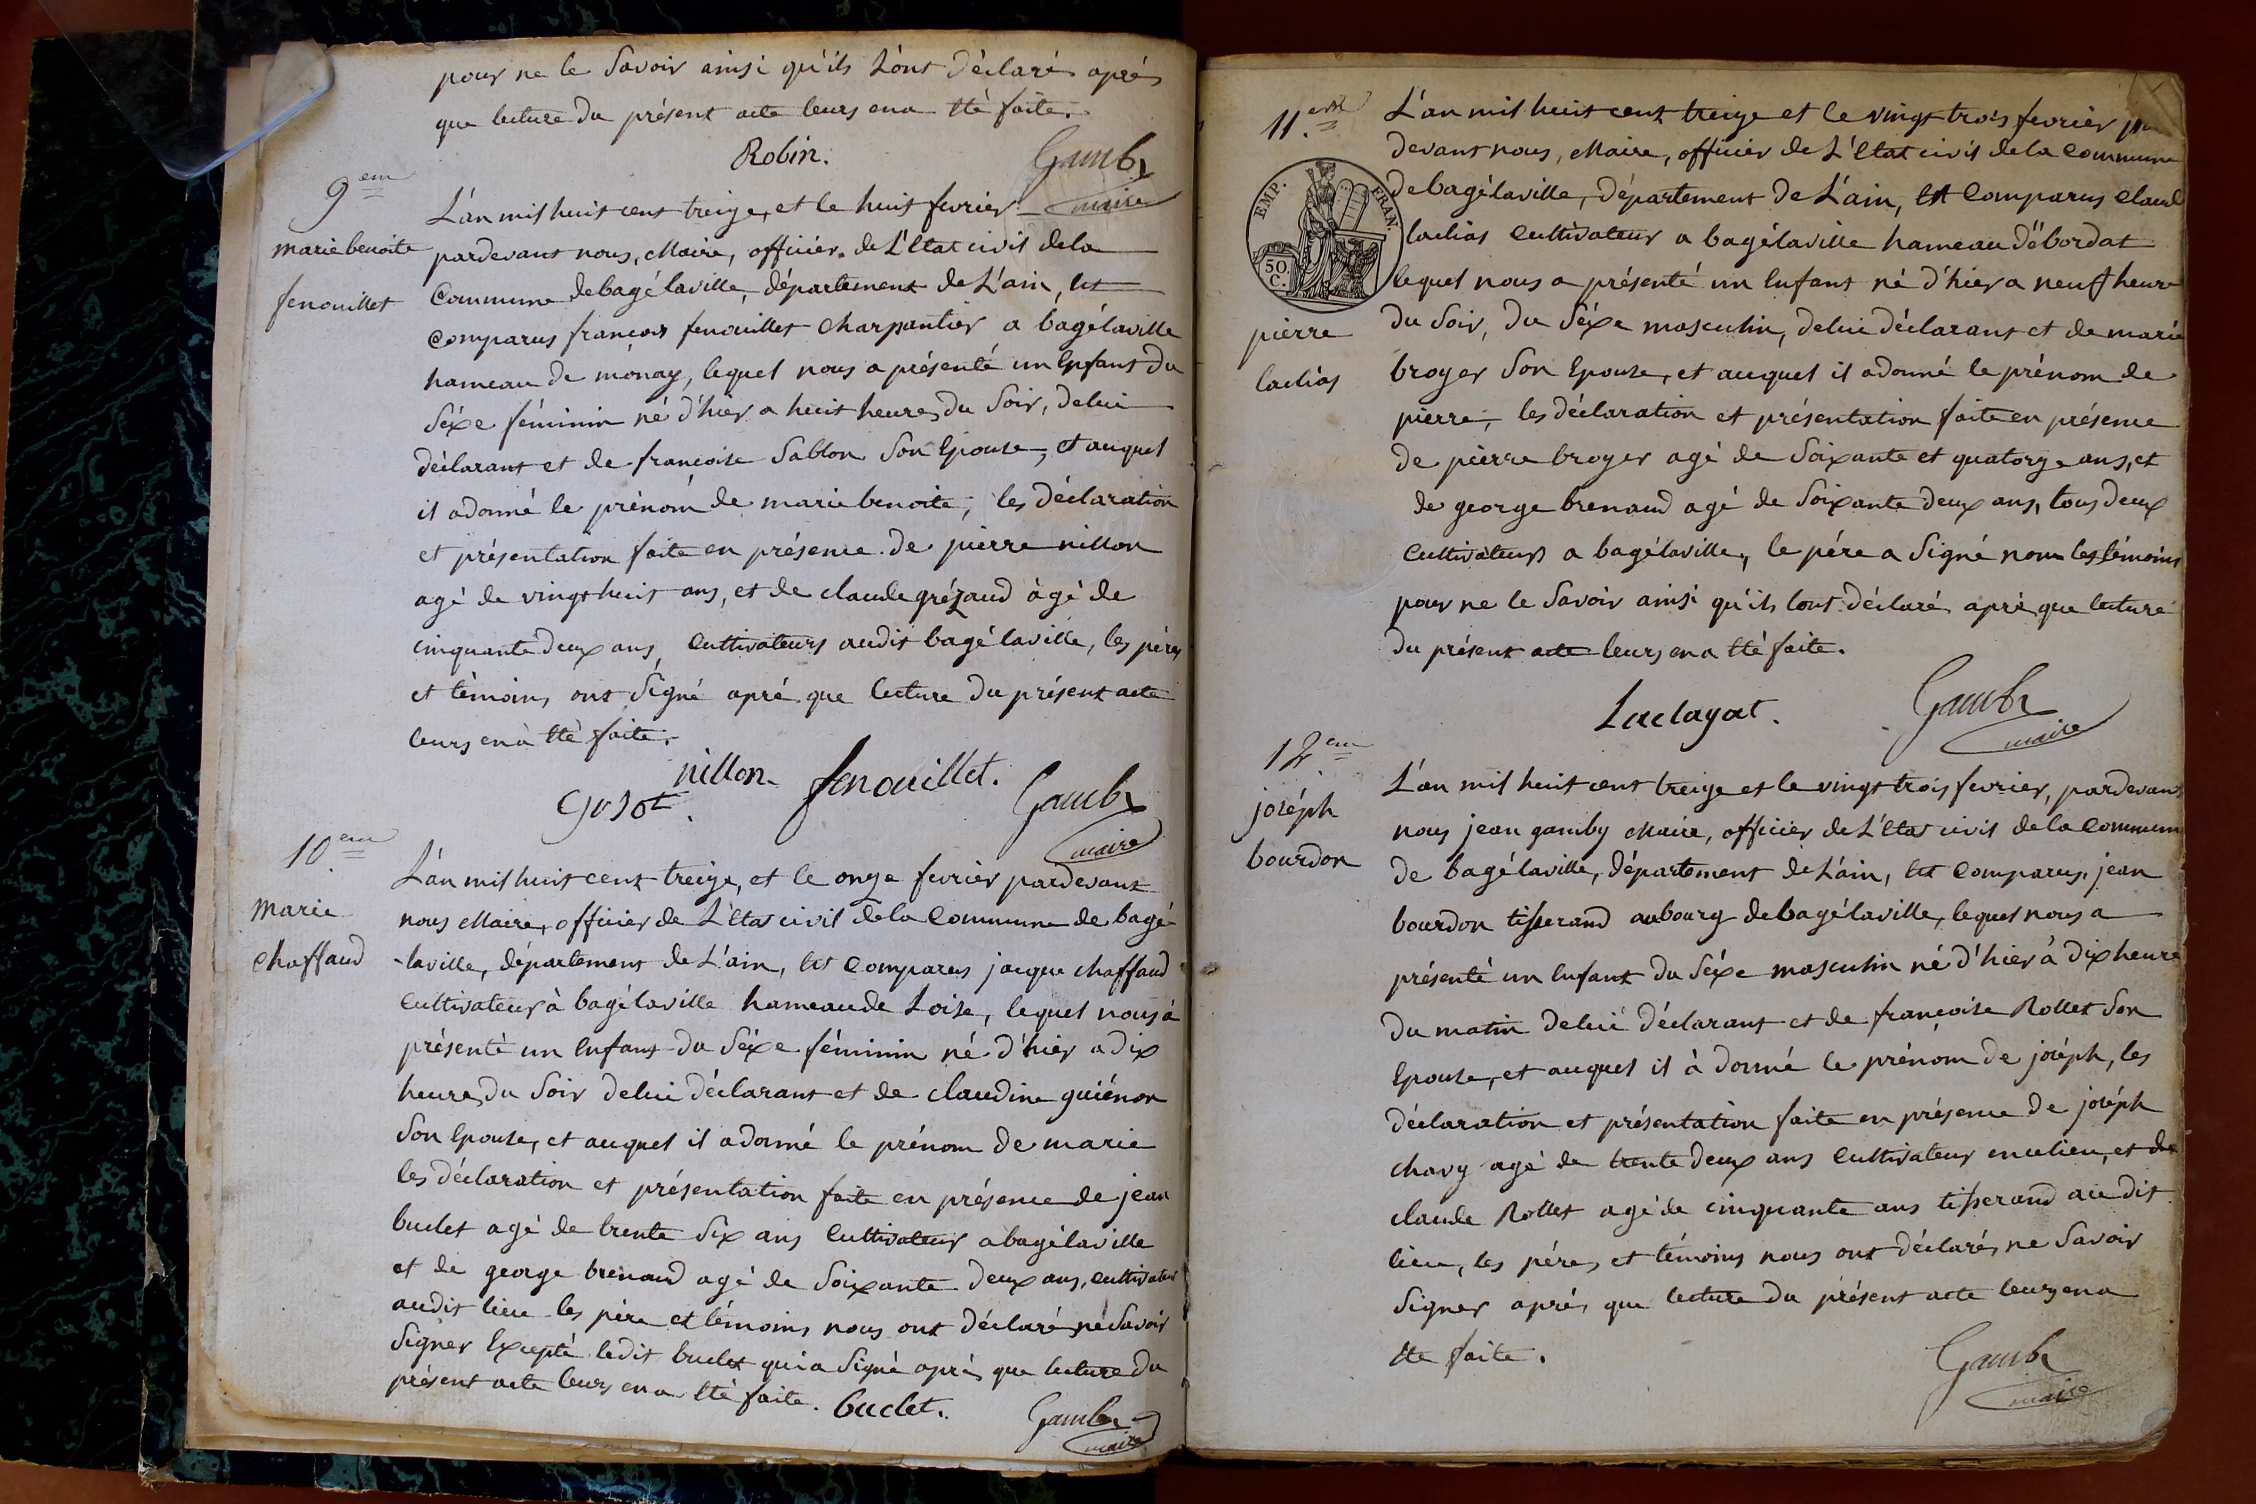 pour ne le Savoir ainsi qu'ils L'ont Déclaré après
que lecture du présent acte leurs en a été faite.
Robin. Gamby
maire
9.em
marie benoite
fenouillet
L'an mil huit cent treize, et le huit fevrier
pardevant nous, Maire, officier de L'Etat civil de la
Commune de bagélaville, département de L'ain, est
Comparus francois fenouillet Charpantier a bagélaville
hameau de mònay, lequel nous a présenté un Enfant du
Séxe féminin né d'hier a huit heures du Soir, de lui
déclarant et de francoise Sablon Son Epouse, et auquel
il a donné le prénom de marie benoite, les déclaration
et présentation faite en présence de pierre nillon
agé de vingt huit ans, et de claude grézaud àgé de
cinquante deux ans, Cultivateurs audit bagélaville, les pères
et témoins ont Signé apré que lecture du présent acte
leurs en à été faite.
nillon fenouillet.
Gamby
maire
10.em
Marie
Chaffaud
L'an mil huit cent treize, et le onze fevrier pardevant
nous Maire, officier de L'Etat civil de la Commune de bagé
-laville, département de L'ain, est Comparus jacque Chaffaud
Cultivateur à bagélaville hameau de Loise, lequel nous à
présenté un Enfant du Séxe féminin né d'hier a dix
heures du Soir de lui déclarant et de claudine guiénon
Son Epouse, et auquel il a donné le prénom de marie
les déclaration et présentation faite en présence de jean
buclet agé de trente Six ans Cultivateur a bagélaville
et de george brenaud agé de Soixante deux ans, Cultivateur
audit lieu les père et témoins nous ont déclaré ne Savoir
Signer Excepté ledit buclet qui a Signé après que lecture du
présent acte leurs en a été faite. buclet.
Gamby
maire
11.em
EMP. FRAN.
50 C.
pierre
laclias
L'an mil huit cent treize et le vingt trois fevrier par
devant nous, Maire, officier de L'Etat civil de la Commune
de bagélaville, département de L'ain, est Comparus Claude
laclias Cultivateur a bagélaville hameau de bordat
lequel nous a présenté un Enfant né d'hier a neuf heure
du Soir, du Séxe masculin, de lui déclarant et de marie
broyer Son Epouse, et auquel il a donné le prénom de
pierre, les déclaration et présentation faite en présence
de pierre broyer agé de Soixante et quatorze ans, et
de george brenaud agé de Soixante deux ans, tous deux
Cultivateurs a bagélaville, le pére a Signé non les témoins
pour ne le Savoir ainsi qu'ils lont déclaré après que lecture
du présent acte leurs en a été faite.
Laclayat. Gamby
maire
12.em
joséph
bourdon
L'an mil huit cent treize et le vingt trois fevrier, pardevant
nous jean gamby Maire, officier de L'Etat civil de la Commune
de bagélaville, département de L'ain, est Comparus, jean
bourdon tisserand au bourg de bagélaville, lequel nous a
présenté un Enfant du Séxe masculin né d'hier à dix heure
du matin de lui déclarant et de francoise Rollet Son
Epouse, et auquel il à donné le prénom de joséph, les
déclaration et présentation faite en présence de joséph
Chavy agé de trente deux ans Cultivateur en ce lieu, et de
claude Rollet agé de cinquante ans tisserand au dit
lieu, les pére, et témoins nous ont déclarés ne Savoir
Signer après que lecture du présent acte leurs en a
été faite.
Gamby
maire